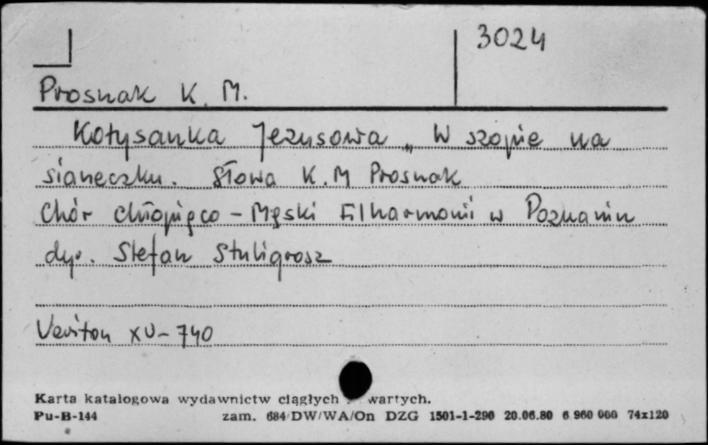 3024
Prosnak K. M.
Kołysanka Jezusowa „W szopie na
sianeczku. Słowa K.M Prosnak
Chór chłopięco - Męski Filharmonii w Poznaniu
dyr. Stefan Stuligrosz
Veriton XV-740
Karta katalogowa wydawnictw ciągłych wartych.
Pu-B-144 zam. 684/DW/WA/On DZG 1501-1-290 20.06.80 6 960 000 74x120